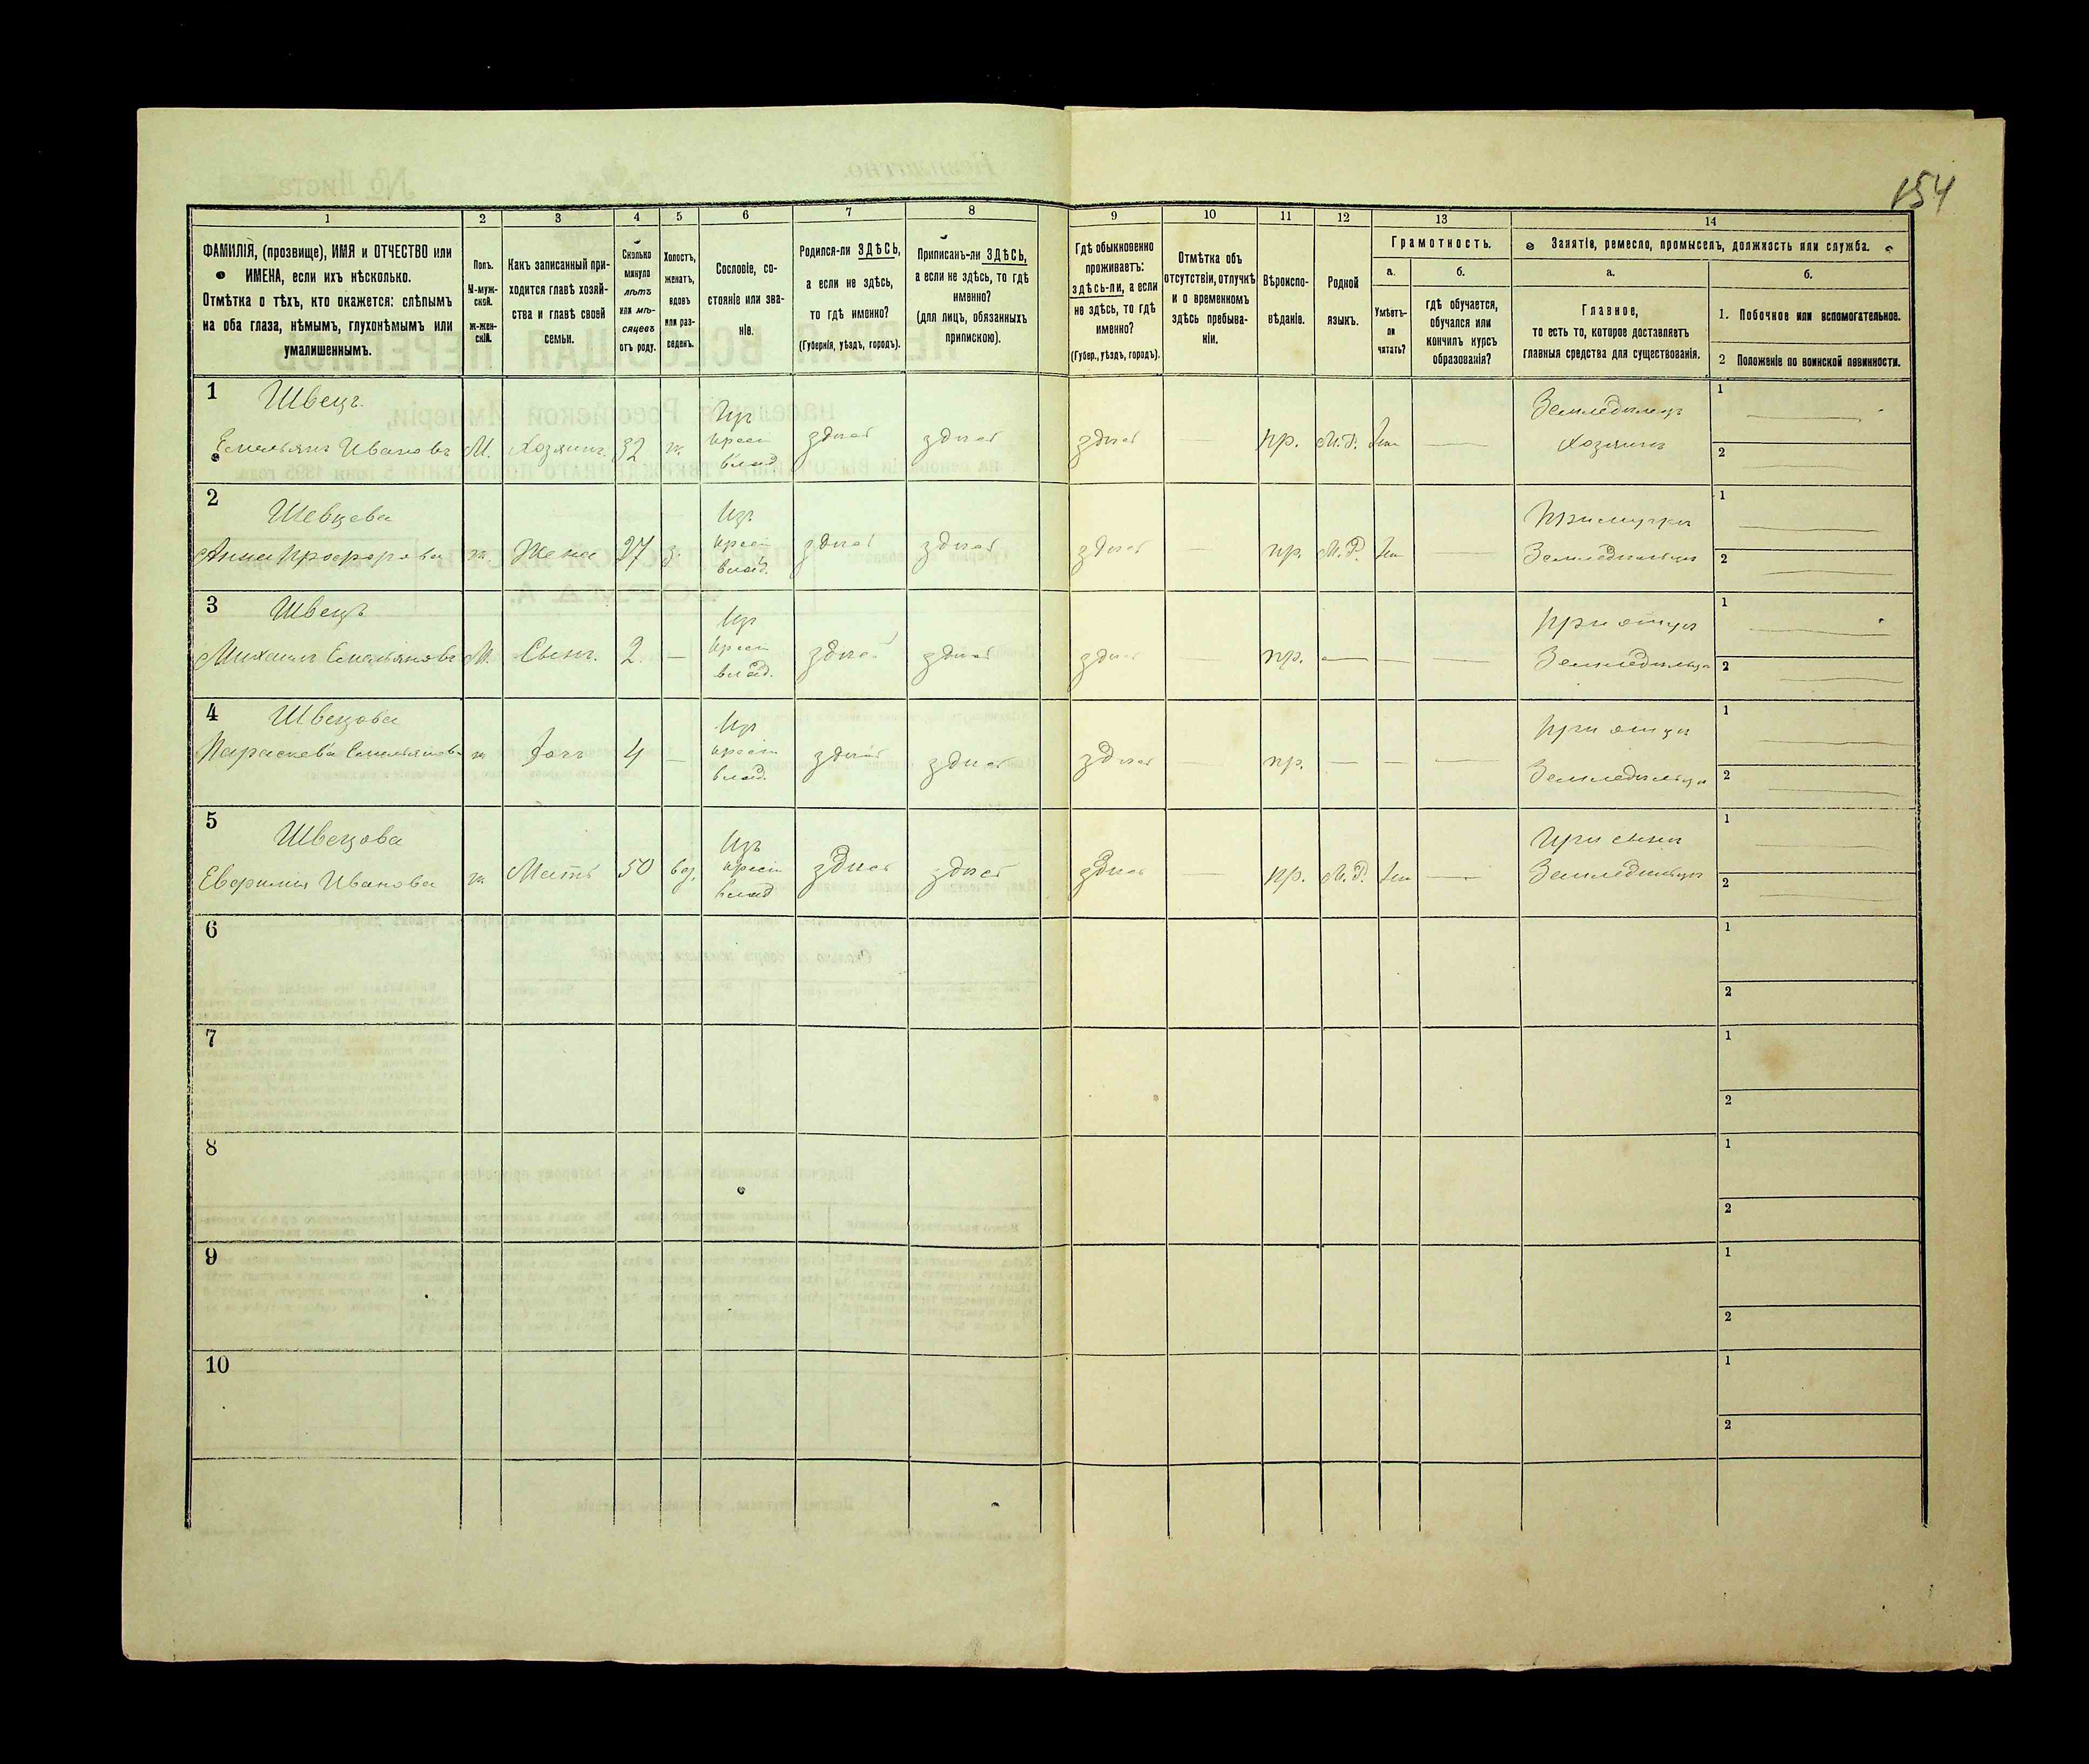 154
1 2 3 4 5 6 7 8 9 10 11 12 13 14
ФАМИЛІЯ, (прозвище), ИМЯ и ОТЧЕСТВО или
ИМЕНА, если ихъ нѣсколько.
Отмѣтка о тѣхъ, кто окажется: слѣпымъ
на оба глаза, нѣмымъ, глухонѣмымъ или
умалишеннымъ.
Полъ.
М-муж-
ской.
ж-жен-
скій.
Какъ записанный при-
ходится главѣ хозяй-
ства и главѣ своей
семьи.
Сколько
минуло
лѣтъ
или мѣ-
сяцевъ
отъ роду.
Холостъ,
женатъ,
вдовъ
или раз-
веденъ.
Сословіе, со-
стояніе или зва-
ніе.
Родился-ли ЗДѢСЬ,
а если не здѣсь,
то гдѣ именно?
(Губернія, уѣздъ, городъ).
Приписанъ-ли ЗДѢСЬ,
а если не здѣсь, то гдѣ
именно?
(для лицъ, обязанныхъ
припискою).
Гдѣ обыкновенно
проживаетъ:
здѣсь-ли, а если
не здѣсь, то гдѣ
именно?
(Губер., уѣздъ, городъ).
Отмѣтка объ
отсутствіи, отлучкѣ
и о временномъ
здѣсь пребыва-
ніи.
Вѣроиспо-
вѣданіе.
Родной
языкъ.
Грамотность.
а.
Умѣетъ-
ли
читать?
б.
гдѣ обучается,
обучался или
кончилъ курсъ
образованія?
Занятіе, ремесло, промыселъ, должность или служба.
а.
Главное,
то есть то, которое доставляетъ
главныя средства для существованія.
б.
1. Побочное или вспомогательное.
2 Положеніе по воинской повинности.
1 Швецъ Из Земледѣлецъ 1
Емельянъ Ивановъ М. Хозяинъ 32 ж. крест здѣсь здѣсь здѣсь — пр. М.Р. — Хозяинъ
влад. 2
2 Шевцева Изъ 1
Анна ж. Жена 27 з. крест здѣсь здѣсь здѣсь — пр. М.Р. — Земледѣльца
влад. 2
3 Швецъ Из При отцѣ 1
Михаилъ Емельяновъ М. Сынъ. 2. — крест здѣсь здѣсь здѣсь — пр. — — — Земледѣльца
влад. 2
4 Швецова Из При отцѣ 1
Параскева Емельянова ж Дочь 4 — крест здѣсь здѣсь здѣсь — пр. — — — Земледѣльца
влад. 2
5 Швецова Изъ При сынѣ 1
Евфимія Иванова ж. Мать 50 вд. крест здѣсь здѣсь здѣсь — пр. М.Р. — Земледѣльца
влад 2
6 1
2
7 1
2
8 1
2
9 1
2
10 1
2